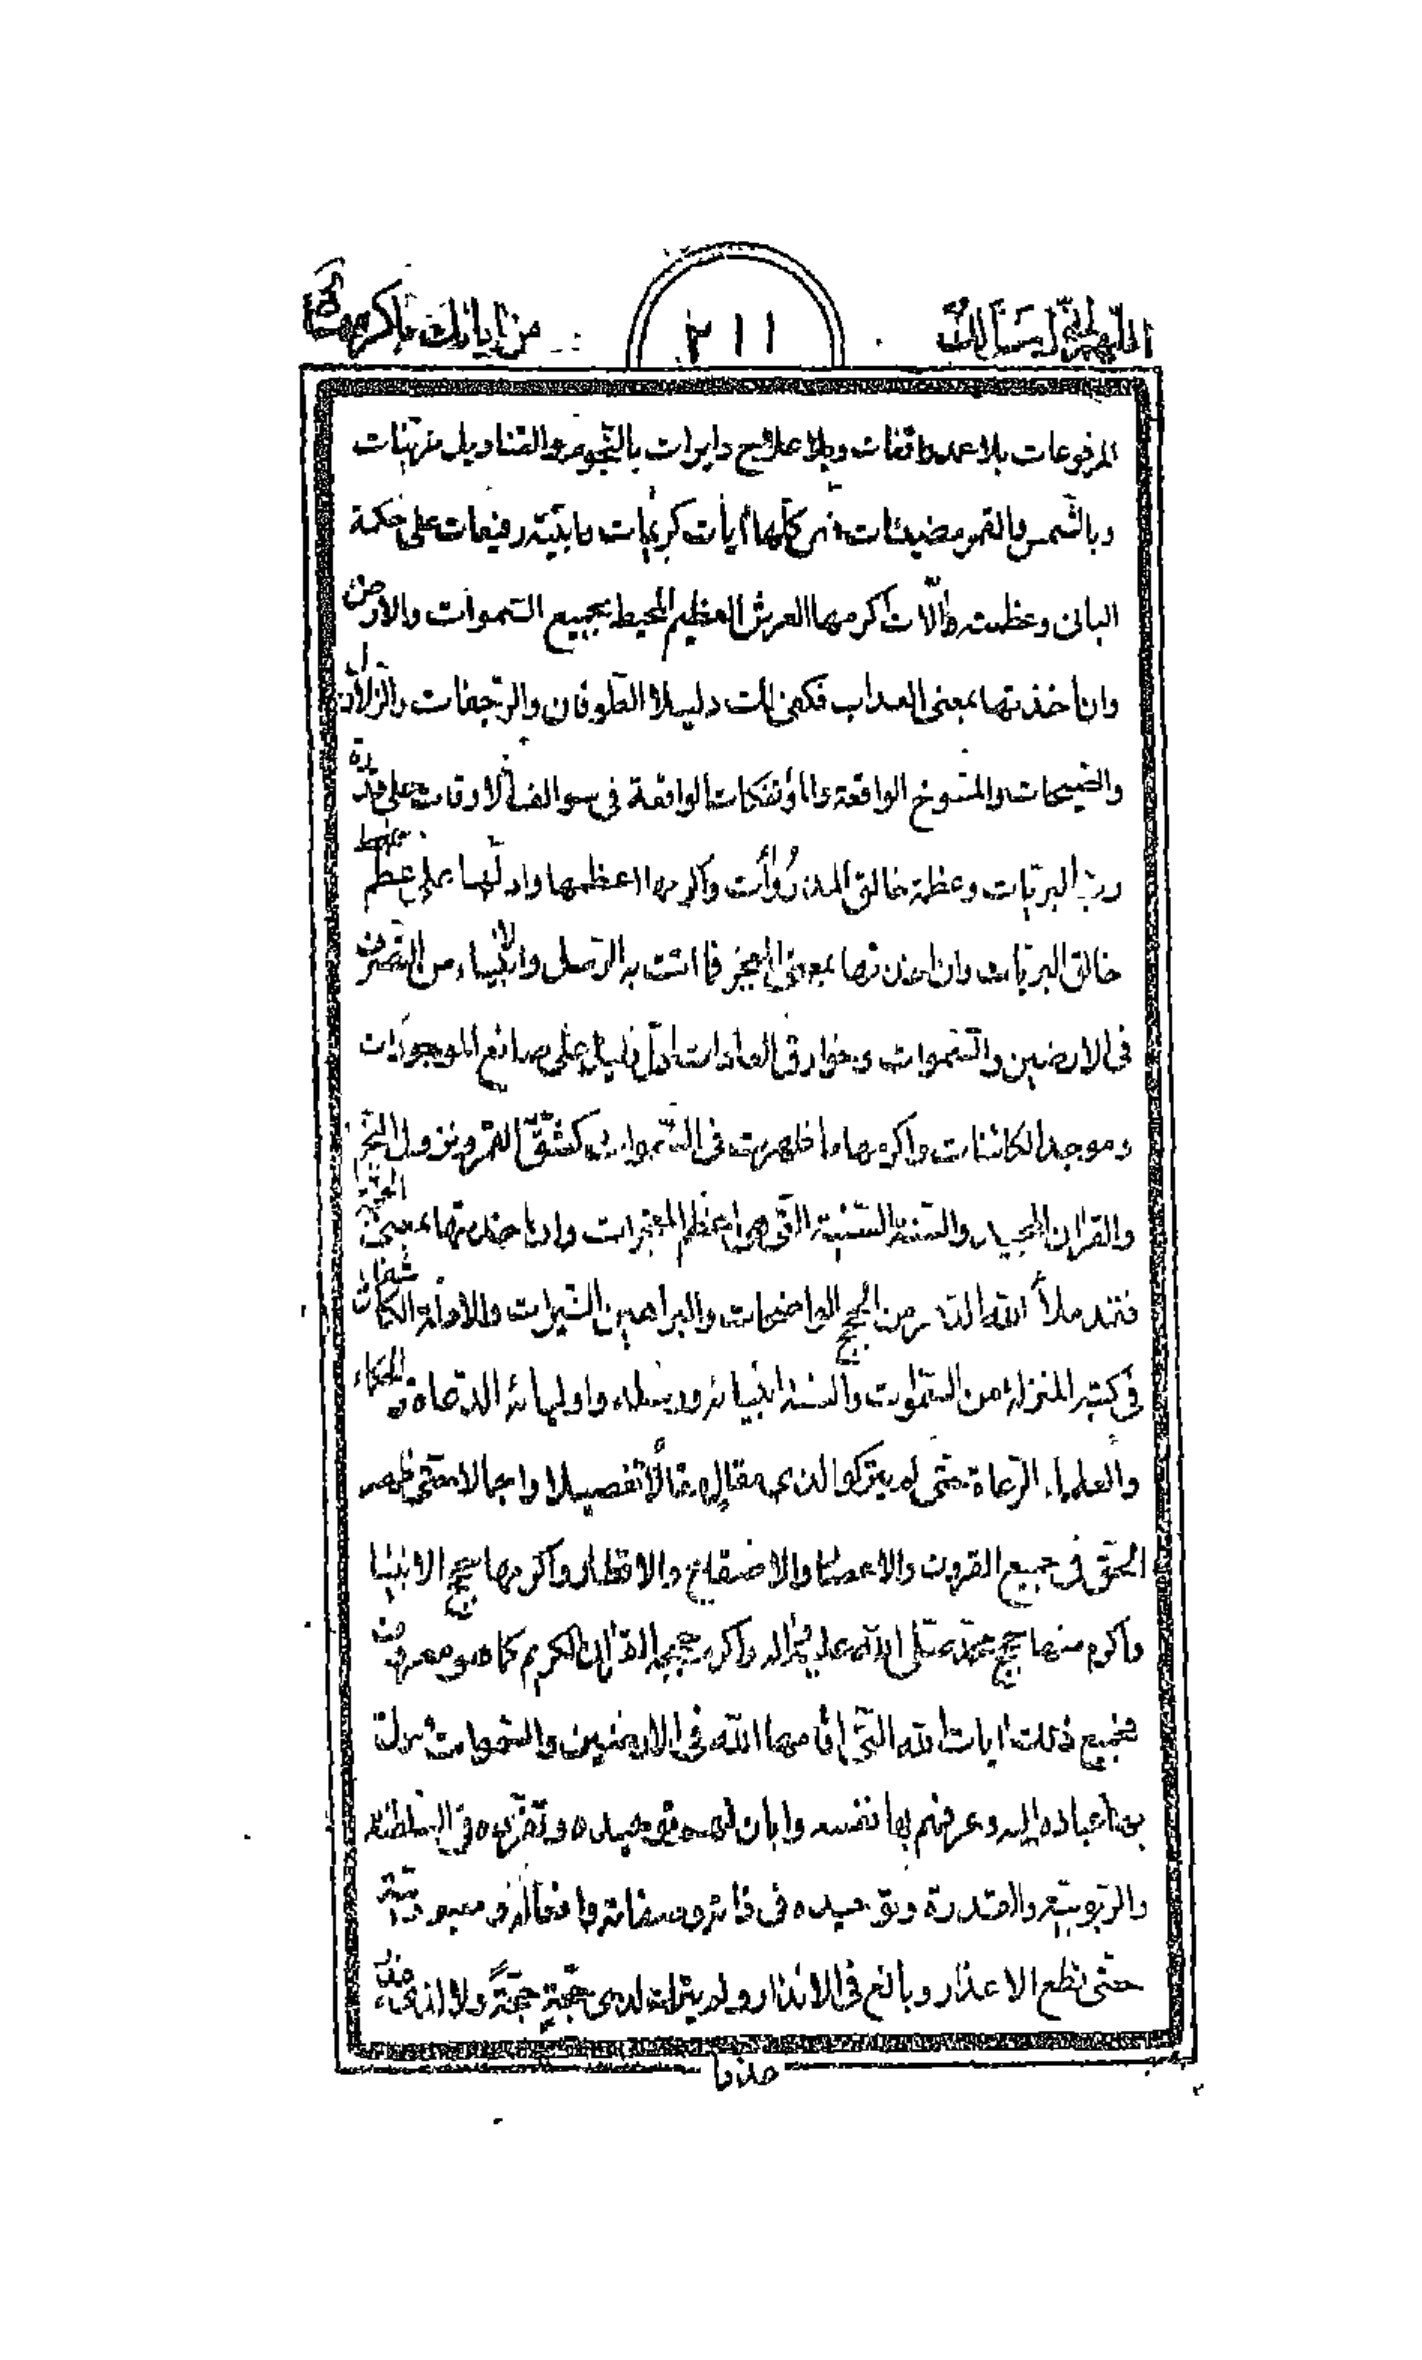 اللّهمّ انّي اسألك
٢١١
من اياتك باكرمها
المرفوعات بلا عمد واقفات وبلا علايج دايرات بالنّجوم والقناديل مزيّنات
وبالشّمس والقمر مضيئات فهى كلّها ايات كريمات وابنية رفيعات على حكمة
البانى وعظمته دالّات اكرمها العرش العظيم المحيط بجميع السّموات والارض
وان أخذتها بمعنى العذاب فكفى لك دليلا الطّوفان والرّجفات والزلازل
والصّيحات والمسوخ الواقعة والمؤتفكات الواقعة فى سوالف الاوقات على قدرة
ربّ البريّات وعظمة خالق المذروأت واكرمها اعظمها وادلّها على عظم
خالق البريّات وان اخذتها بمعنى المعجز فما اتت به الرّسل والانبياء من التصرّف
فى الارضين والسّموات وخوارق العادات ادلّ دليل على صانع الموجودات
وموجد الكائنات واكرمها ما ظهرت فى السّموات كشقّ القمر ونزول النّجم
والقران المجيد والسّنة السّنيّة الّتى هى اعظم المعجزات وان اخذتها بمعنى الحجّة
فقد ملأ الله من الحجج الواضحات والبراهين النّيّرات والادلّة الكاشفات
فى كتبه المنزلة من السّموات والسنة انبيائه ورسله واوليائه الدّعاة والحكماء
والعلماء الرّعاة حتّى لم يتركوا لذى مقال مقالاً تفصيلا واجمالا حتّى ظهر
الحقّ فى جميع القرون والاعصار والاصقاع والاقطار واكرمها حجج الانبيا
واكرم منها حجج محمّد صلّى الله عليه واله واكرم حججه القرأن الكريم كما هو معروف
فجميع ذلك ايات الله الّتى اقامها الله فى الارضين والسّموات
بها عباده اليه وعرفهم بها نفسه وابان لهم توحيده وتفرّده فى السّلطنة
والرّبوبيّة والقدرة وتوحيده فى ذاته وصفاته وافعاله ومعبوديّته
حتّى قطع الاعذار وبالغ فى الانذار ولم يترك لذى حجّة حجّةً ولا لذى عذر
عذرا